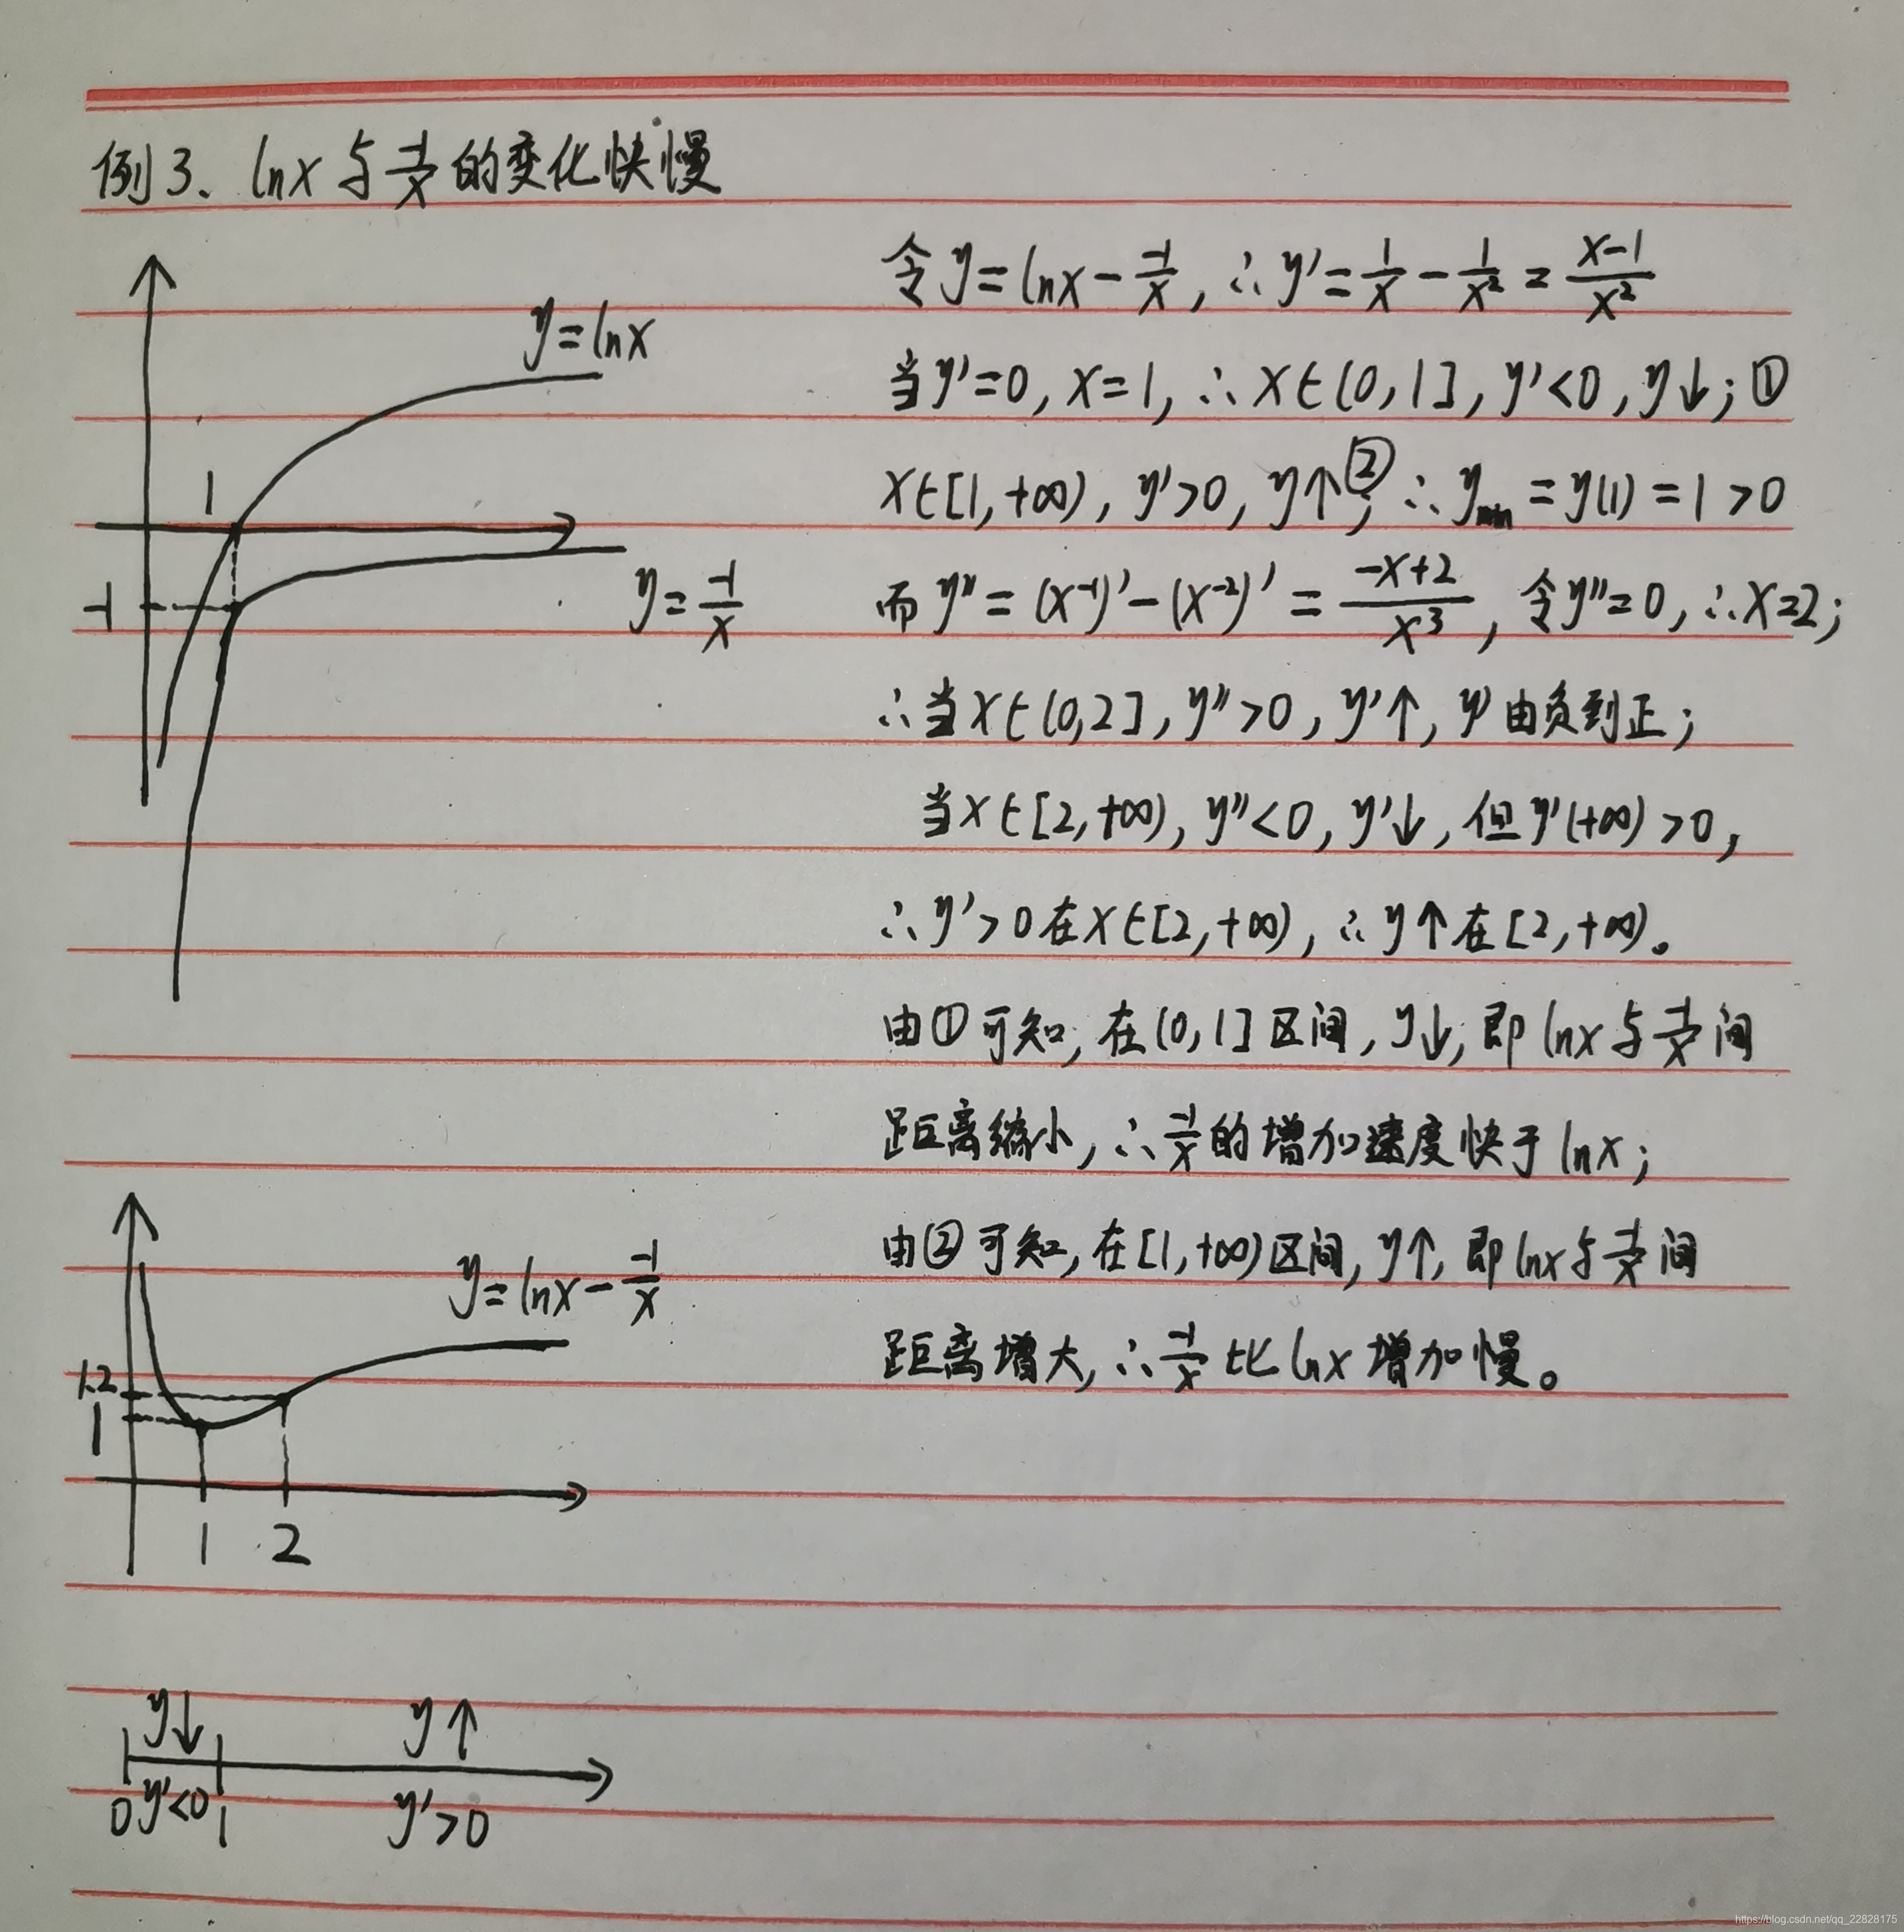 例3、lnx与-1/x的变化快慢
y=lnx
1
-1
y=-1/x
令y=lnx-(-1/x),∴y'=1/x-1/x²=(x-1)/x²
当y'=0,x=1,∴x∈(0,1],y'<0,y↓;①
x∈[1,+∞),y'>0,y↑②;∴ymin=y(1)=1>0
而y''=(x⁻¹)'-(x⁻²)'=(-x+2)/x³,令y''=0,∴x=2;
∴当x∈(0,2],y''>0,y'↑,y'由负到正;
当x∈[2,+∞),y''<0,y'↓,但y'(+∞)>0,
∴y'>0在x∈[2,+∞),∴y↑在[2,+∞)。
由①可知,在(0,1]区间,y↓,即lnx与-1/x间
距离缩小,∴-1/x的增加速度快于lnx;
由②可知,在[1,+∞)区间,y↑,即lnx与-1/x间
距离增大,∴-1/x比lnx增加慢。
y=lnx-(-1/x)
1.2
1
1 2
y↓ y↑
0 y'<0 1 y'>0
https://blog.csdn.net/qq_22828175